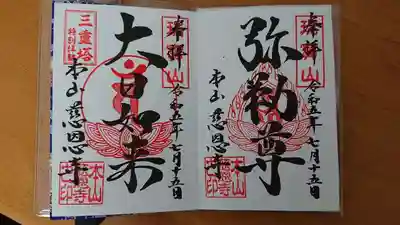 奉拝
瑞宝山
令和五年七月十五日
弥勒尊
本山慈恩寺
本山慈恩寺印
奉拝
瑞宝山
令和五年七月十五日
大日如来
三重塔
特別拝観
本山慈恩寺
本山慈恩寺印